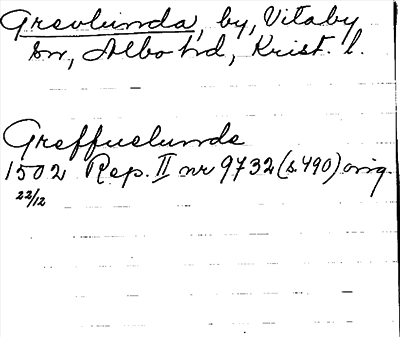 Grevlunda, by, Vitaby
sn, Albo hd, Krist. l.
Greffuelunde
1502 Rep. II nr 9732 (s. 490) orig.
22/12